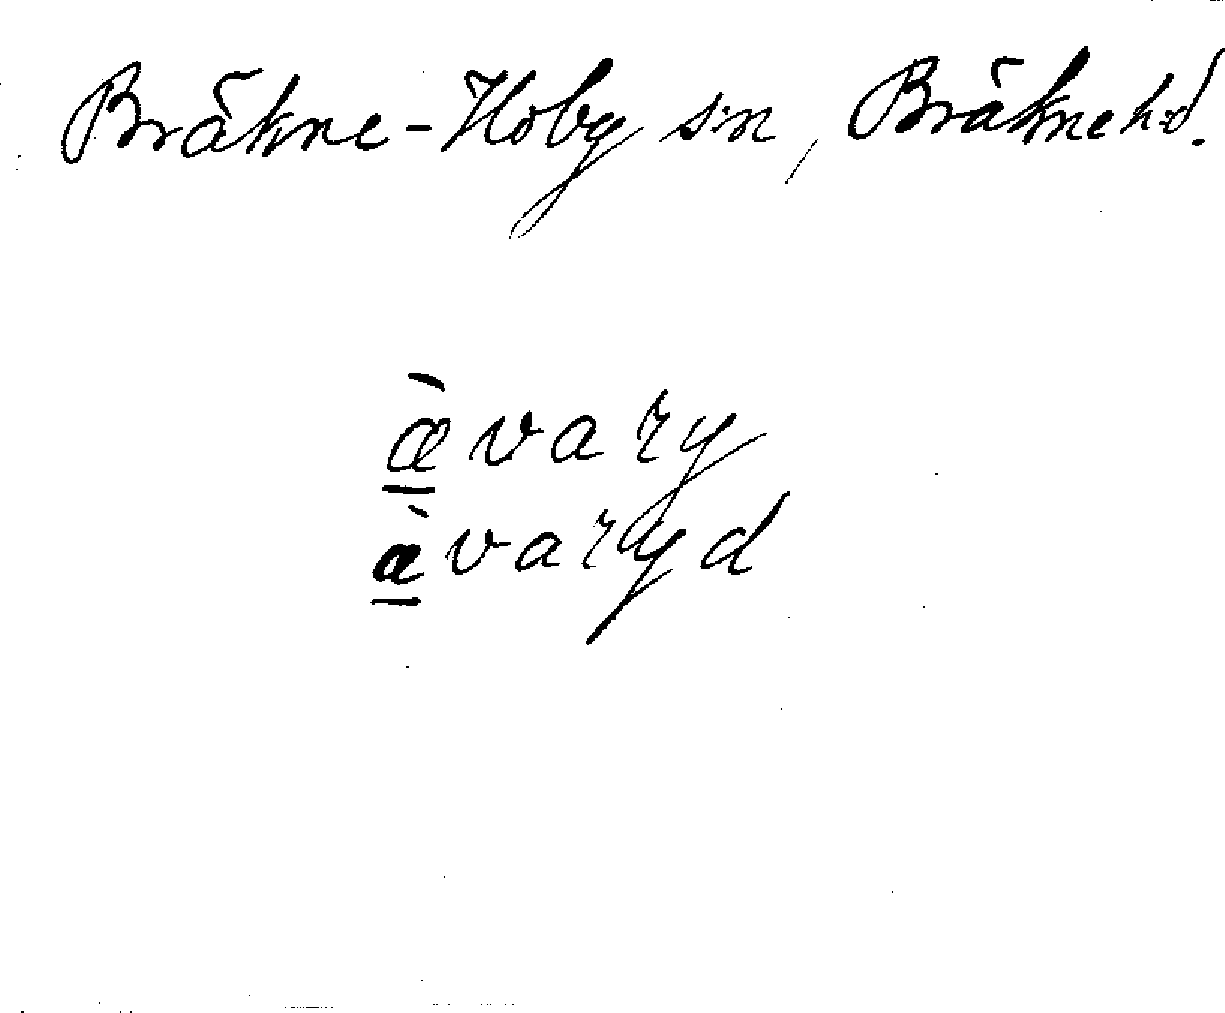 Bräkne-Hoby s:n, Bräkne h:d.
æ̠̀vary
æ̠̀varyd